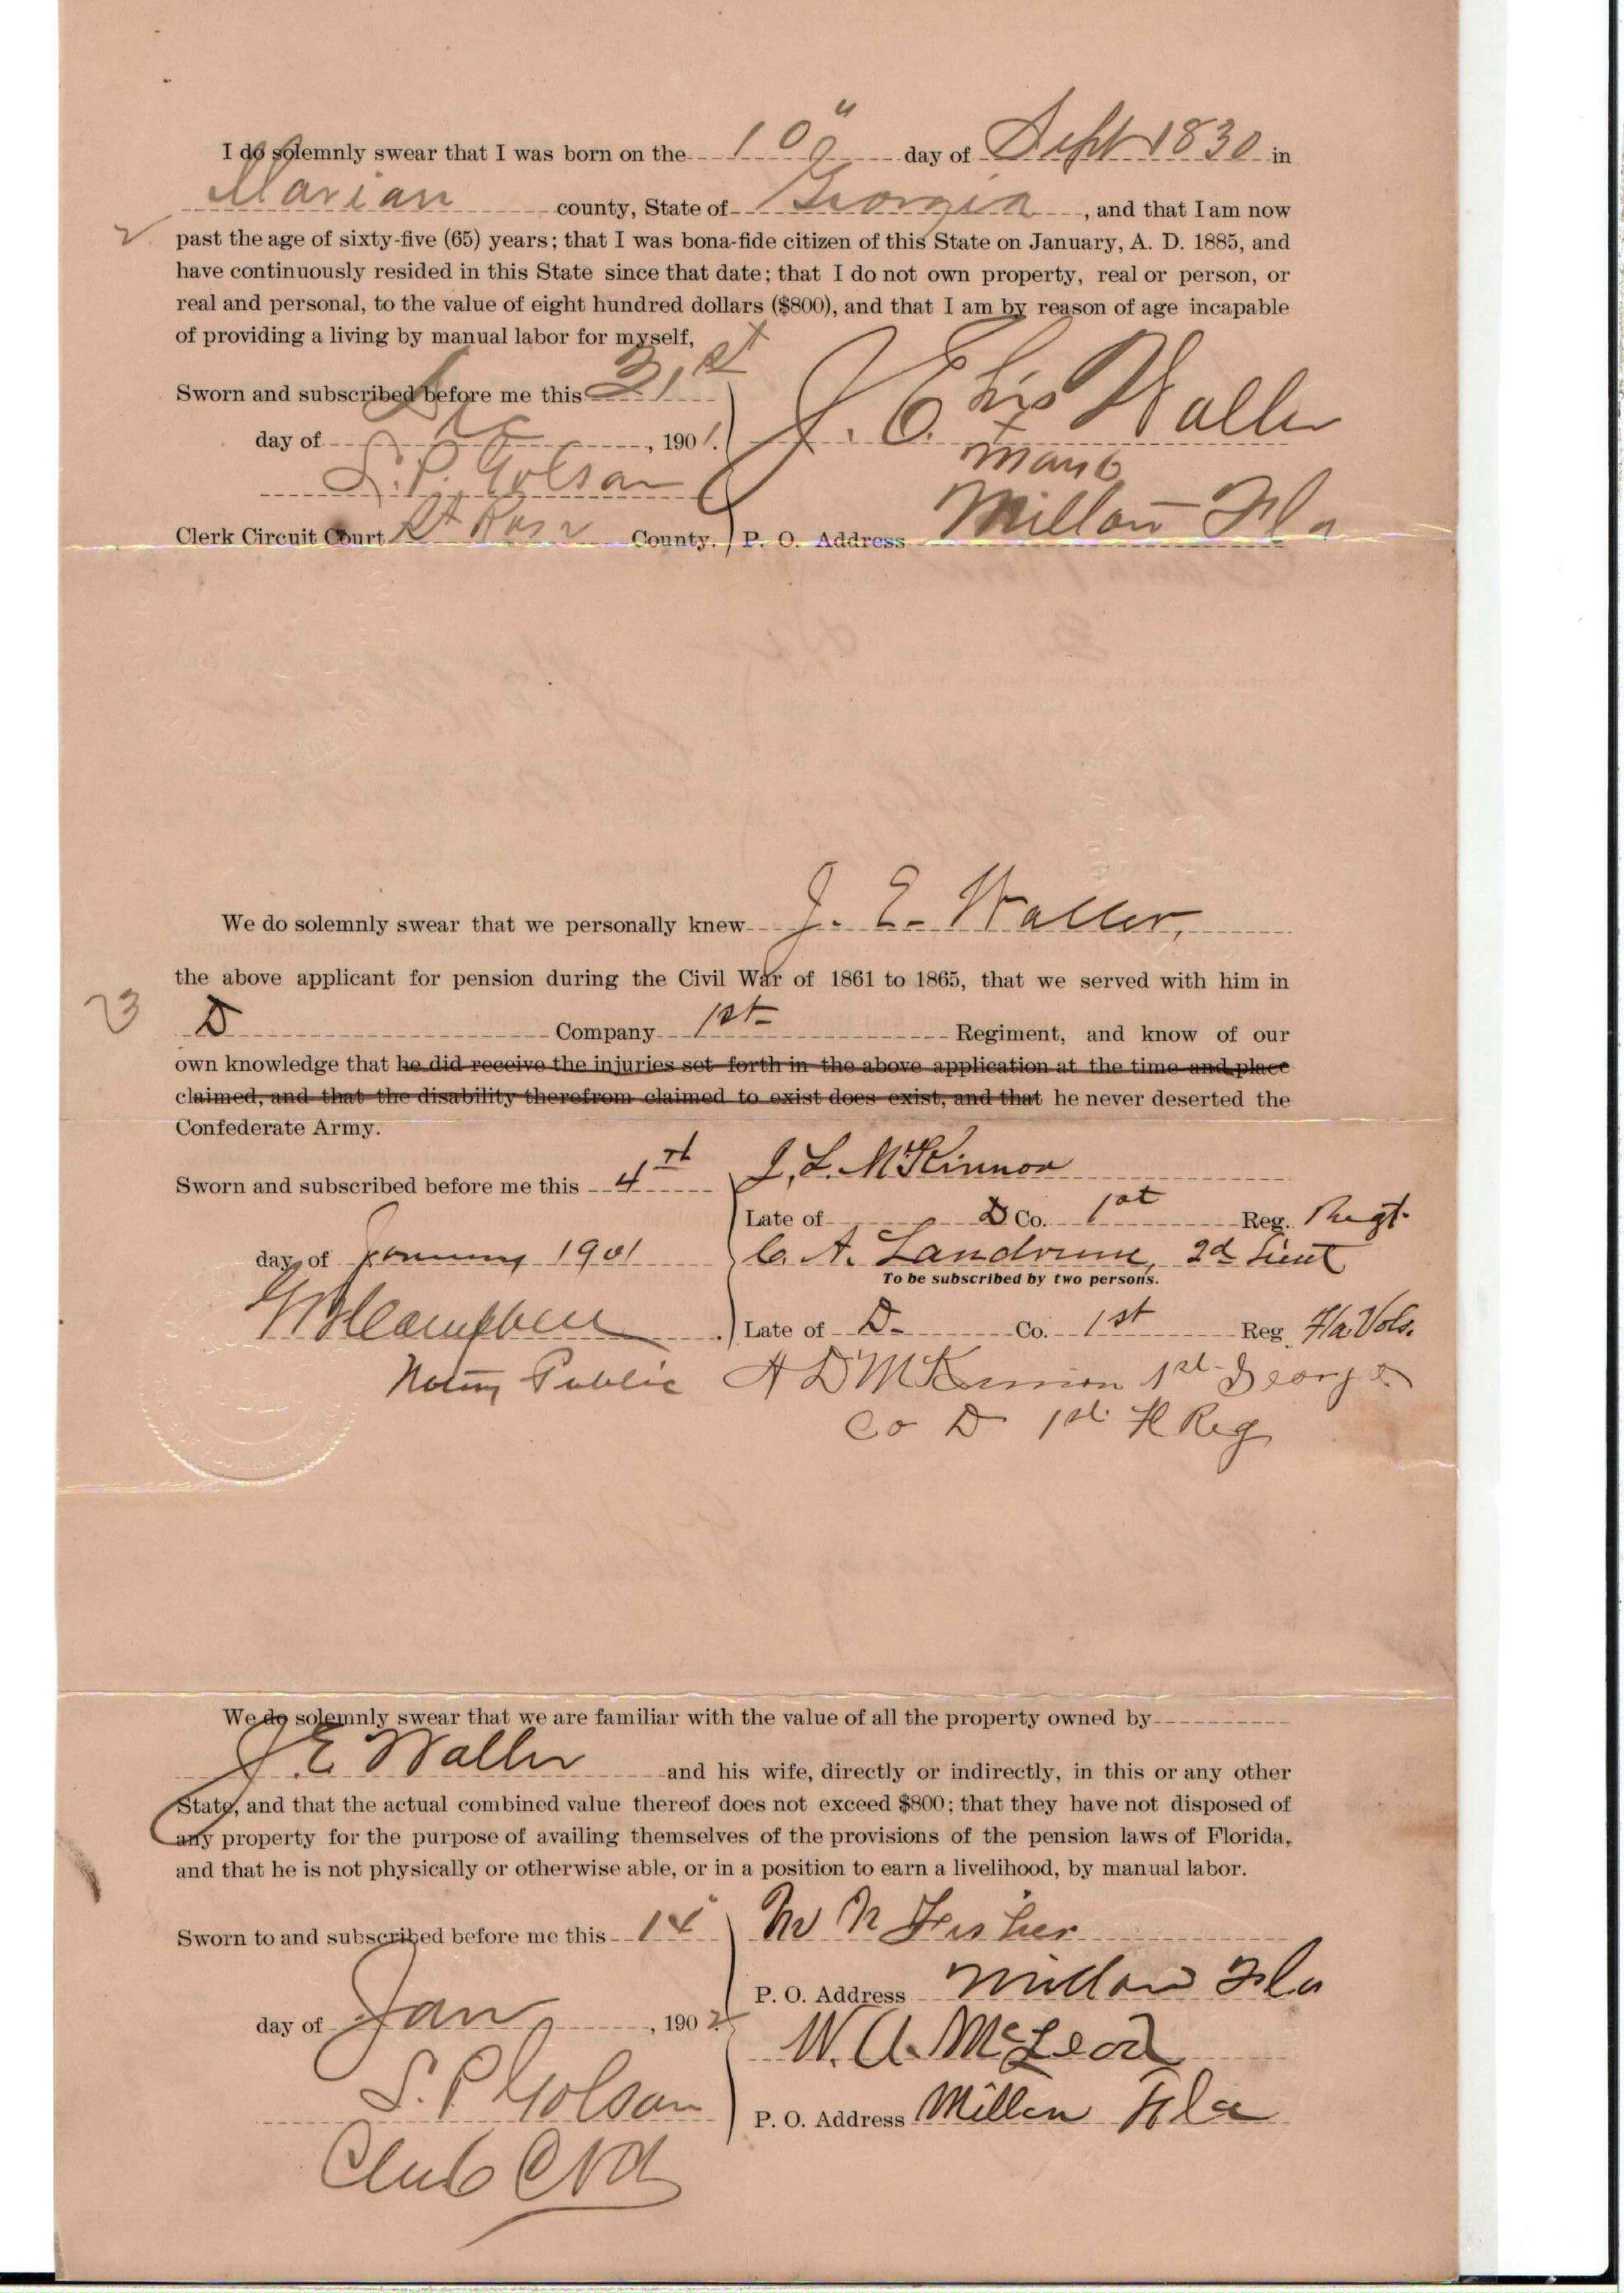 I do solemnly swear that I was born on the 10" day of Sept 1830 in
Marian county, State of Georgia, and that I am now
past the age of sixty-five (65) years; that I was bona-fide citizen of this State on January, A. D. 1885, and
have continuously resided in this State since that date; that I do not own property, real or person, or
real and personal, to the value of eight hundred dollars ($800), and that I am by reason of age incapable
of providing a living by manual labor for myself,
Sworn and subscribed before me this 31st
day of Dec, 1901. J. E. his Waller
x
mark
S. P. Golson
Clerk Circuit Court St Rosa County. P. O. Address Fla
We do solemnly swear that we personally knew J. E. Waller,
the above applicant for pension during the Civil War of 1861 to 1865, that we served with him in
23 D Company 1st Regiment, and know of our
own knowledge that he did receive the injuries set forth in the above application at the time and place
claimed, and that the disability therefrom claimed to exist does exist, and that he never deserted the
Confederate Army.
Sworn and subscribed before me this 4th J. L. McKinnon
Late of D Co. 1st Reg. Regt.
day of January 1901 C. A. Landrum, 2d Lieut
To be subscribed by two persons.
Campbell Late of D Co. 1st Reg Fla Vols.
Notary Public A D McKinnon 1st
Co D 1st Fl Reg
We do solemnly swear that we are familiar with the value of all the property owned by
J E Waller and his wife, directly or indirectly, in this or any other
State, and that the actual combined value thereof does not exceed $800; that they have not disposed of
any property for the purpose of availing themselves of the provisions of the pension laws of Florida,
and that he is not physically or otherwise able, or in a position to earn a livelihood, by manual labor.
Sworn to and subscribed before me this Fisher
P. O. Address Fla
day of Jan, 1902
W. A. McLeod
S. P Golson P. O. Address Millen Fla
Clerk